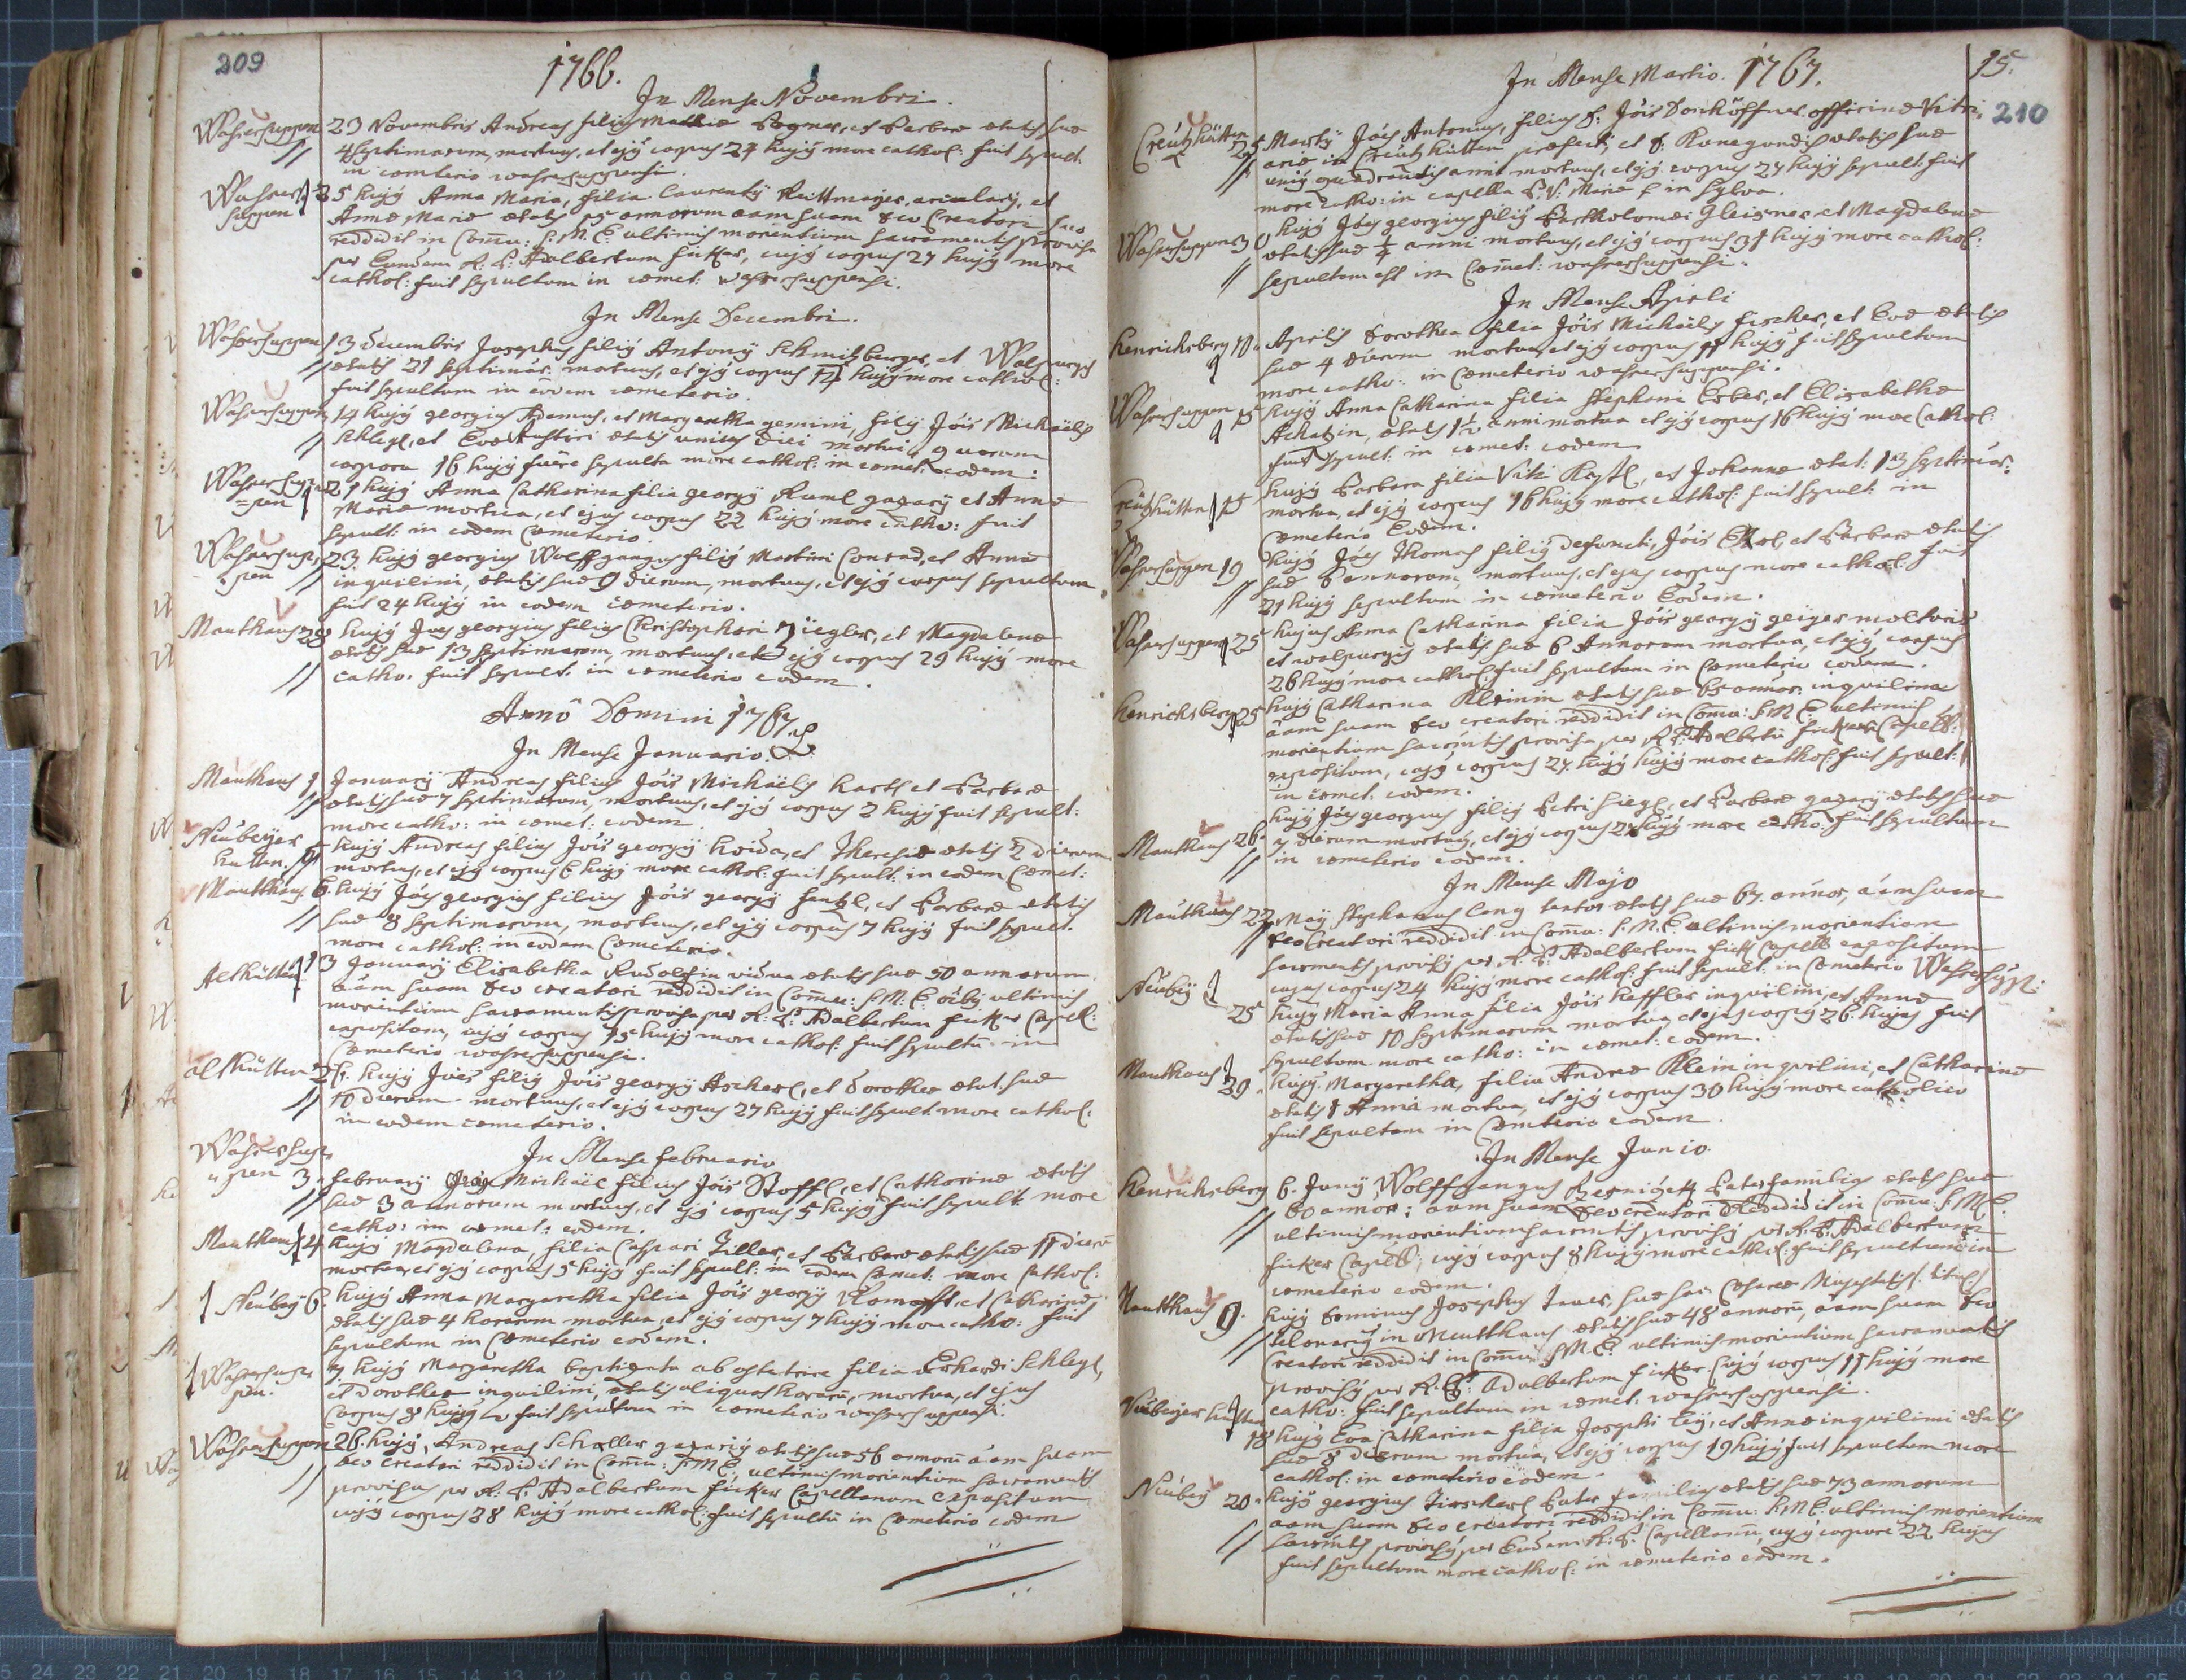 209
1766.
In Mense Novembri.
Wassersuppen 23 Novembris Andreas filius Mathiae Pogner, et Barbarae aetatis suae
4 septimarum, mortuus, et ejus corpus 24 hujus more cathol: fuit sepult.
in coemterio wassersuppensi.
Wassersuppen 25 hujus Anna Maria, filia Laurentij Reittmajer, acicularij, et
Annae Mariae aetatis 15 annorum aam suam Deo Creatori suo
reddidit in Comu: S. M. E. ultimis morientium sacramentis provisa
per Eundem R: P: Adalbertum Ficker, cujus corpus 27 hujus more
cathol: fuit sepultum in coemet: wassersuppensi.
In Mense Decembri.
Wassersuppen 13 Decembris Josephus filius Antonij Schmitzberger, et Walpurgis
aetatis 21 septimar: mortuus, et ejus corpus 14 hujus more cathol:
fuit sepultum in eodem coemeterio.
Wassersuppen 14 hujus georgius Adamus, et Margaretha gemini, filij Jois Michaelis
Schlegl, et Evae aetatis unius diei mortui, quorum
corpora 16 hujus fuere sepulta more cathol: in coemet: eodem:
Wassersup=pen 21 hujus Anna Catharina filia georgij Ruml gazarij et Annae
Mariae mortua, et ejus corpus 22 hujus more catho: fuit
sepult: in eodem Coemeterio.
Wassersuppen 23 hujus georgius Wolffgangus filius Martini Conrad, et Annae
inquilini, aetatis suae 9 dierum, mortuus, et ejus corpus sepultum
fuit 24 hujus in eodem coemeterio.
Mauthaus 28 hujus Joes georgius filius Christophori Ziegler, et Magdalenae
aetatis suae 13 septimarum, mortuus, et ejus corpus 29 hujus more
catho. fuit sepult. in coemeterio eodem.
Anno Domini 1767
In Mense Januario.
Mauthaus 1 Januarij Andreas filius Jois Michaelis Hartl et Barbarae
aetatis suae 7 septimarum, mortuus, et ejus corpus 2 hujus fuit sepult:
more catho: in coemet: eodem
Neubeyer hutten 5 hujus Andreas filius Jois georgij et Theresiae aetatis 2 dierum
mortuus, et ejus corpus 6 hujus more cathol: fuit sepult: in eodem Coemet:
Mautthaus 6. hujus Joes georgius filius Jois georgij et Barbarae aetatis
suae 8 septimarum, mortuus, et ejus corpus 7 hujus fuit sepult.
more cathol: in eodem Coemeterio.
Althütten 13 Januarij Elisabetha Rudolfin vidua aetatis suae 50 annorum
aam suam Deo creatori reddidit in Comu: S: M: E ultimis
morientium Sacramentis provisa per R: P: Adalbertum Ficker Capell:
expositum, cujus corpus 15 hujus more cathol: fuit sepultu in
Coemeterio wassersuppensi.
althütten 26. hujus Joes filius Jois georgij Ascherl, et Dorotheae aetat. suae
10 dierum mortuus, et ejus corpus 27 hujus fuit sepult more cathol:
in eodem coemeterio.
In Mense februario
Wassersuppen 3. februarij Michael filius Jois Stoffl, et Catharinae aetatis
suae 3 annorum mortuus, et ejus corpus 5 hujus fuit sepult. more
catho: in coemet: eodem.
Mauthaus 4 hujus Magdalena, filia Caspari Ziller, et Barbarae aetatis suae 11 dieru
mortua, et ejus corpus 5 hujus fuit sepult: in eodem Coemet: more Cathol:
Neubeij 6. hujus Anna Margaretha filia Jois georgij et Catharinae
aetatis suae 4 horarum mortua, et ejus corpus 7 hujus more catho: fuit
sepultum in Coemeterio eodem.
Wassersuppen. 7 hujus Margaretha baptizata ab obstetrice filia Erhardi Schlegl,
et Dorotheae inquilini, aetatis aliquot horaru, mortua, et ejus
Corpus 8 hujus fuit sepultum in coemeterio wassersuppensi.
Wassersuppen 26. hujus, Andreas Schaller gazarius aetatis suae 56 annoru aam suam
Deo creatori reddidit in Comu: S: M: E, ultimis morientium sacramentis
provisus per R: P: Adalbertum Ficker Capellanum Expositum
cujus corpus 28 hujus more cathol: fuit sepultu in Coemeterio eodem
15.
210
In Mense Martio. 1767.
Creutzhütten 25 Martij Joes Antonius, filius D. Jois Donhöffner officinae Vitri
ariae in Creutzhütten praefecti, et D. Kunegundis aetatis suae
unius quadrantis anni mortuus, et ejus corpus 27 hujus sepult: fuit
more catho: in capella B. V. Mariae in Sylva.
Wassersuppen 30 hujus Joes georgius filius Bartholomaei Gleisner et Magdalenae
aetatis suae 1/4 anni mortuus, et ejus corpus 31 hujus more cathol:
sepultum est in Coemet: wassersuppensi.
In Mense Aprili
Henrichsberg 10. Aprilis Dorothea filia Jois Michaelis Fischer, et Evae aetatis
suae 4 dierum mortua, et ejus corpus 11 hujus fuit sepultum
more catho: in Coemeterio wassersuppensi.
Wassersuppen 15 hujus Anna Catharina filia Stephani Erber, et Elisabethae
Achatzin, aetatis 1 1/2 anni mortua et ejus corpus 16 hujus more Cathol:
fuit sepult: in coemet: eodem
Creutzhütten 15 hujus Barbara filia Viti et Johannae aetat: 13 septimar:
mortua, et ejus corpus 16 hujus more cathol: fuit sepult: in
Coemeterio Eodem.
Wassersuppen 19 hujus Joes Thomas filius defuncti, Jois et Barbarae aetatis
suae annorum mortuus, et ejus corpus more cathol: fuit
21 hujus sepultum in coemeterio Eodem.
Wassersuppen 25 hujus Anna Catharina filia Jois georgij geiger molitoris
et walpurgis aetatis suae 6 Annorum mortua, et ejus corpus
26 hujus more cathol: fuit sepultum in Coemeterio eodem.
Henrichsberg 25 hujus Catharina Kleinin aetatis suae 65 annor: inquilina
aam suam Deo creatori reddidit in Comu: S: M: E ultimis
morientium sacramtis provisa per R. P: Adalbertu Ficker Capell:
expositum, cujus corpus 27. hujus hujus more cathol: fuit sepult:
in coemet. eodem.
Mauthaus 26. hujus Joes georgius filius Petri Siegl, et Barbarae gazarij aetatis suae
7 dierum mortuus, et ejus corpus 27 hujus more catho: fuit sepultum
in coemeterio eodem.
In Mense Majo
Mauthaus 22 Maij Stephanus Lang textor aetatis suae 67. annor, aam suam
Deo Creatori reddidit in Comu: S. M. E ultimis morientium
sacramentis provisus per R. P. Adalbertum Fick Capell expositum
cujus corpus 24 hujus more cathol: fuit sepult: in Coemeterio Wassersupp:
Neubeij 25 hujus Maria Anna filia Jois Heffler inquilini, et Annae
aetatis suae 10 septimarum mortua et ejus corpus 26. hujus fuit
sepultum more catho: in coemet: eodem.
Mauthaus 29. hujus Margaretha, filia Andreae Klein inquilini, et Catharinae
aetatis 1 Anni mortua, et ejus corpus 30 hujus more catholico
fuit sepultum in Coemterio eodem.
In Mense Junio.
Henrichsberg 6. Junij Wolffgangus Paterfamilias aetatis suae
60 annor: aam suam Deo creatori Reddidit in Comu: S. M. E.
ultimis morientium sacramtis provisus per R. P. Adalbertum
Ficker Capell; cujus corpus 8 hujus more cathol: fuit sepultum in
coemeterio eodem.
Mautthaus 9. hujus Dominus Josephus suae sac Caesareae Majestatis
telonarius in Mautthaus aetatis suae 48 annoru, aam suam Deo
Creatori reddidit in Comu: S M. E. ultimis morientium sacramentis
provisus per R. P: Adalbertum Ficker cujus corpus 11 hujus more
catho: fuit sepultum in coemet. wassersuppensi.
Neubeijerhütten 18 hujus Eva Catharina filia Josephi et Annae inquilini aetatis
suae 8 dierum mortua, et ejus corpus 19 hujus fuit sepultum more
cathol: in coemeterio eodem.
Neubeij 20. hujus georgius Pater familias aetatis suae 73 annorum
aam suam Deo creatori reddidit in Comu: S: M: E. ultimis morientium
Sacramtis provisus per Eundem R. P. Capellanu, cujus corpore 22 hujus
fuit sepultum more cathol: in coemeterio eodem.